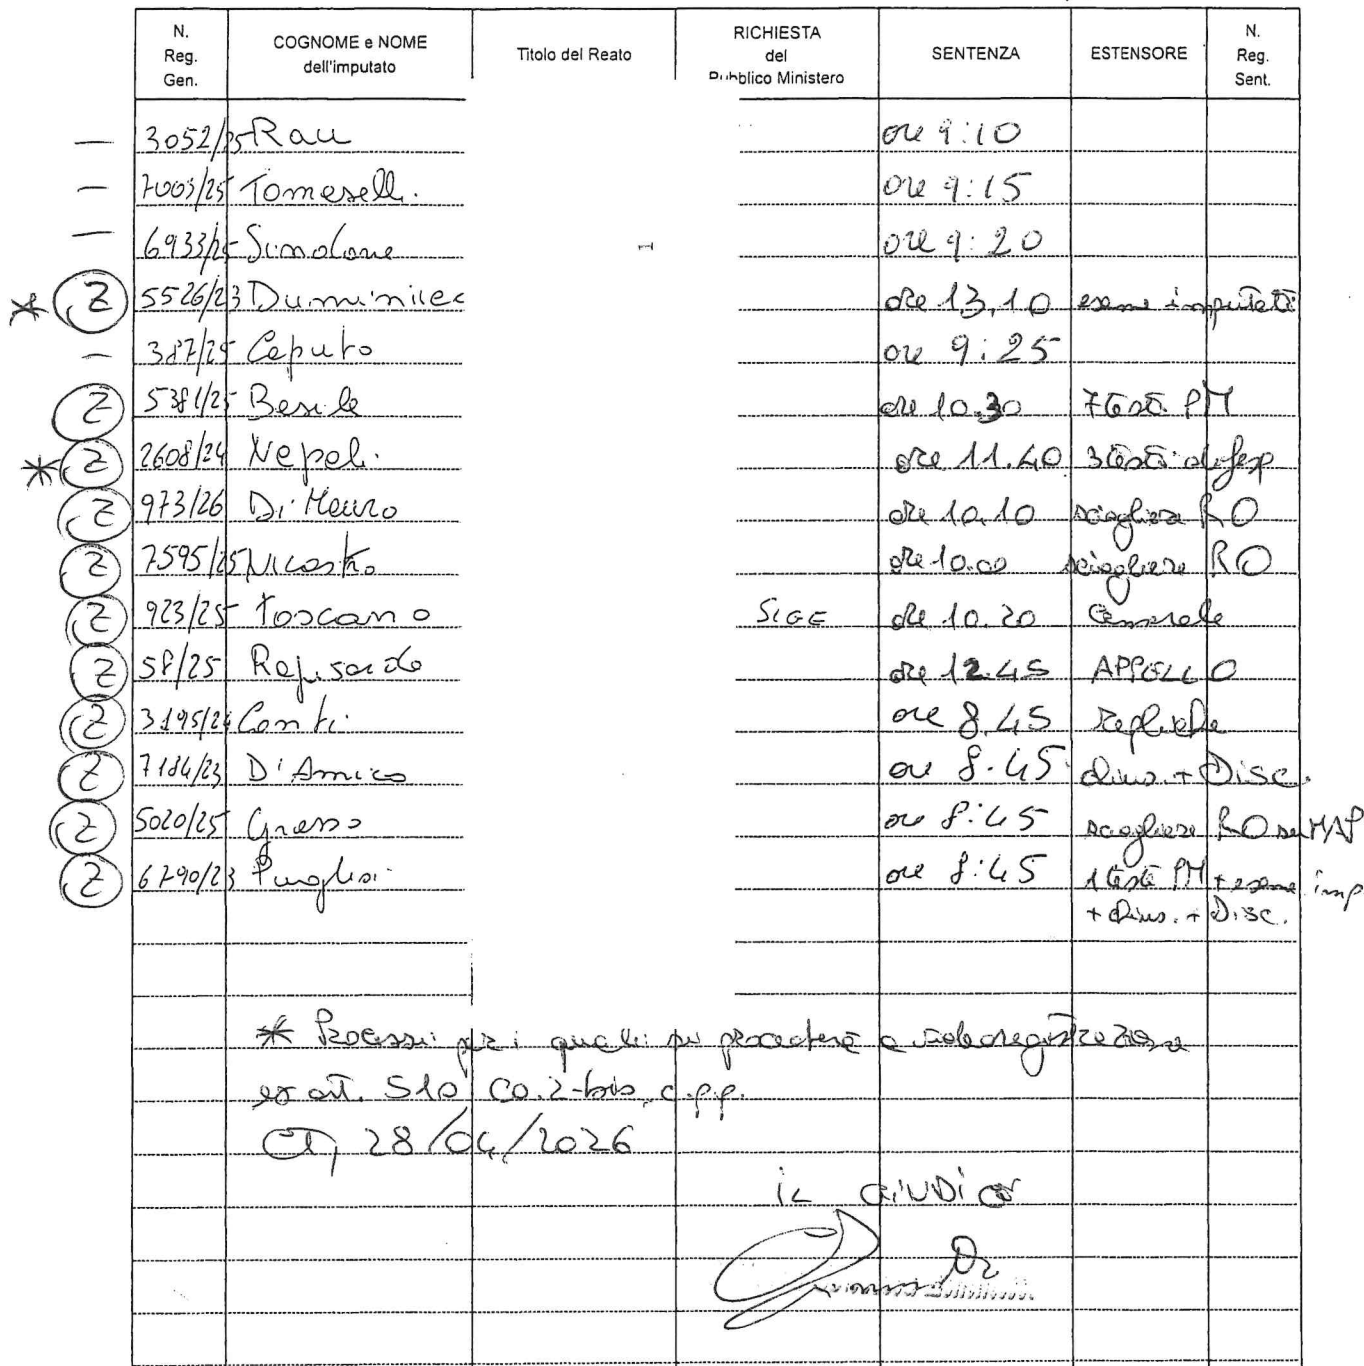 N. Reg. Gen. COGNOME e NOME dell'imputato Titolo del Reato RICHIESTA del Pubblico Ministero SENTENZA ESTENSORE N. Reg. Sent.
— 3052/25 Rau ore 9:10
— 7003/25 Tomaselli ore 9:15
— 6933/25 Sindone ore 9:20
* Z 5526/23 Duminilec ore 13,10 esame imputati
— 387/25 Caputo ore 9:25
Z 5381/25 Basile ore 10.30 7 testi PM
* Z 2608/24 Napoli ore 11.40 3 testi difesa
Z 973/26 Di Mauro ore 10.10 sciogliere RO
Z 7595/25 Nicastro ore 10.00 sciogliere RO
Z 923/25 Toscano SIGE ore 10.20 Camerale
Z 58/25 Rapisarda ore 12.45 APPELLO
Z 3195/24 Conti ore 8.45 Repliche
Z 7184/23 D'Amico ore 8:45 chius. + Disc.
Z 5020/25 Grasso ore 8:45 sciogliere RO su MAP
Z 6790/23 Puglisi ore 8:45 1 teste PM + esame imp
+ chius. + Disc.
* Processi per i quali si procederà a videoregistrazione
ex art. 510 co. 2-bis c.p.p.
CT, 28/04/2026
IL GIUDICE